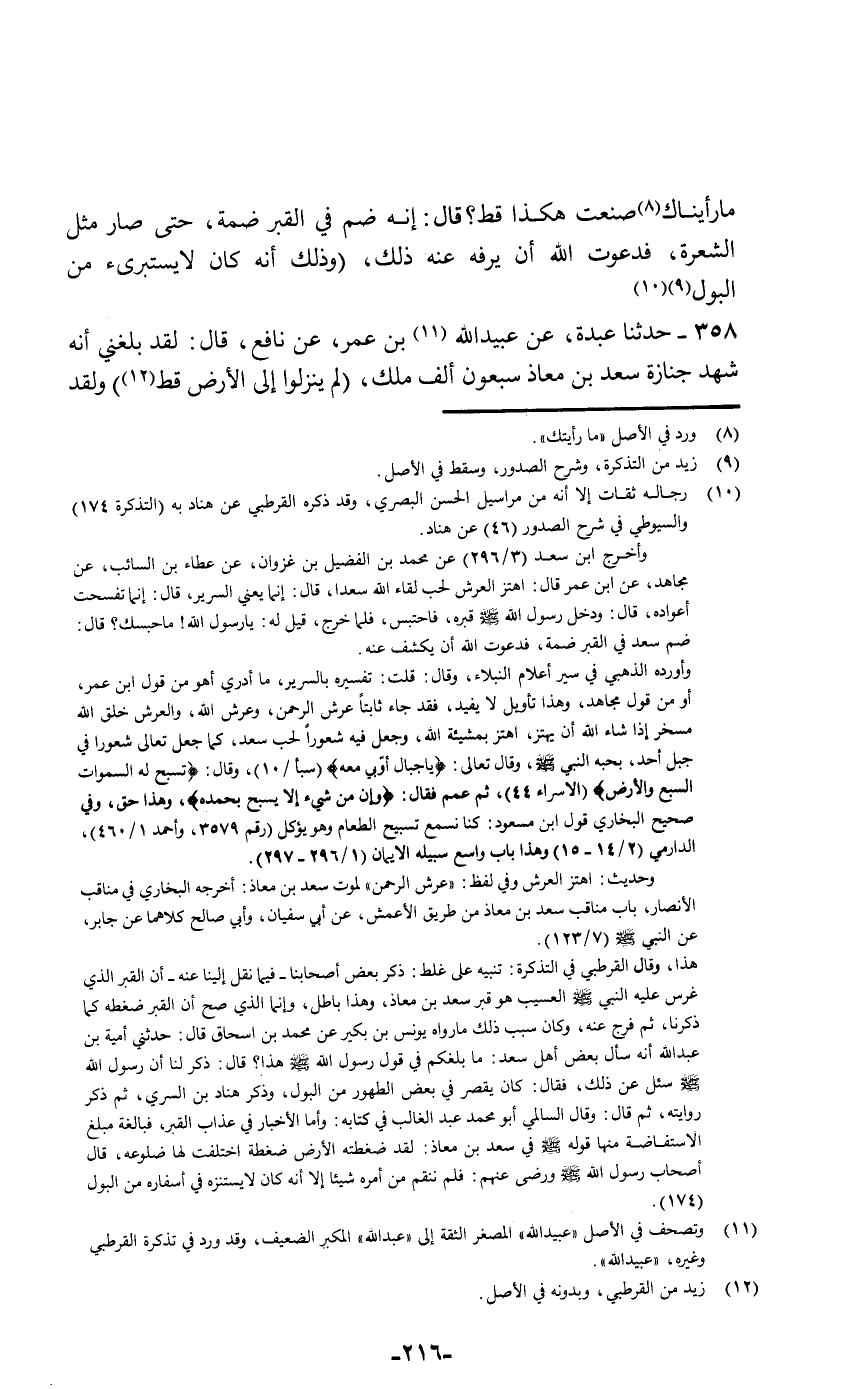 مارأيناك(٨)صنعت هكذا قط؟قال: إنه ضم في القبر ضمة، حتى صار مثل
الشعرة، فدعوت الله أن يرفه عنه ذلك، (وذلك أنه كان لايستبرىء من
البول(٩)(١٠)
٣٥٨ - حدثنا عبدة، عن عبيدالله (١١) بن عمر، عن نافع، قال: لقد بلغني أنه
شهد جنازة سعد بن معاذ سبعون ألف ملك، (لم ينزلوا إلى الأرض قط(١٢)) ولقد
(٨) ورد في الأصل «ما رأيتك».
(٩) زيد من التذكرة، وشرح الصدور، وسقط في الأصل.
(١٠) رجاله ثقات إلا أنه من مراسيل الحسن البصري، وقد ذكره القرطبي عن هناد به (التذكرة ١٧٤)
والسيوطي في شرح الصدور (٤٦) عن هناد.
وأخرج ابن سعد (٢٩٦/٣) عن محمد بن الفضيل بن غزوان، عن عطاء بن السائب، عن
مجاهد، عن ابن عمر قال: اهتز العرش لحب لقاء الله سعدا، قال: إنما يعني السرير، قال: إنما تفسحت
أعواده، قال: ودخل رسول الله ﷺ قبره، فاحتبس، فلما خرج، قيل له: يارسول الله! ماحبسك؟ قال:
ضم سعد في القبر ضمة، فدعوت الله أن يكشف عنه.
وأورده الذهبي في سير أعلام النبلاء، وقال: قلت: تفسيره بالسرير، ما أدري أهو من قول ابن عمر،
أو من قول مجاهد، وهذا تأويل لا يفيد، فقد جاء ثابتاً عرش الرحمن، وعرش الله، والعرش خلق الله
مسخر إذا شاء الله أن يهتز، اهتز بمشيئة الله، وجعل فيه شعوراً لحب سعد، كما جعل تعالى شعورا في
جبل أحد، بحبه النبي ﷺ، وقال تعالى: ﴿ياجبال أوّبي معه﴾ (سبأ /١٠)، وقال: ﴿تسبح له السموات
السبع والأرض﴾ (الاسراء ٤٤)، ثم عمم فقال: ﴿وإن من شيء إلا يسبح بحمده﴾، وهذا حق، وفي
صحيح البخاري قول ابن مسعود: كنا نسمع تسبيح الطعام وهو يؤكل (رقم ٣٥٧٩، وأحمد ٤٦٠/١)،
الدارمي (١٤/٢ - ١٥) وهذا باب واسع سبيله الايمان (٢٩٦/١ - ٢٩٧).
وحديث: اهتز العرش وفي لفظ: «عرش الرحمن» لموت سعد بن معاذ: أخرجه البخاري في مناقب
الأنصار، باب مناقب سعد بن معاذ من طريق الأعمش، عن أبي سفيان، وأبي صالح كلاهما عن جابر،
عن النبي ﷺ (١٢٣/٧).
هذا، وقال القرطبي في التذكرة: تنبيه على غلط: ذكر بعض أصحابنا - فيما نقل إلينا عنه - أن القبر الذي
غرس عليه النبي ﷺ العسيب هو قبر سعد بن معاذ، وهذا باطل، وإنما الذي صح أن القبر ضغطه كما
ذكرنا، ثم فرج عنه، وكان سبب ذلك مارواه يونس بن بكير عن محمد بن اسحاق قال: حدثني أمية بن
عبدالله أنه سأل بعض أهل سعد: ما بلغكم في قول رسول الله ﷺ هذا؟ قال: ذكر لنا أن رسول الله
ﷺ سئل عن ذلك، فقال: كان يقصر في بعض الطهور من البول، وذكر هناد بن السري، ثم ذكر
روايته، ثم قال: وقال السالمي أبو محمد عبد الغالب في كتابه: وأما الأخبار في عذاب القبر، فبالغة مبلغ
الاستفاضة منها قوله ﷺ في سعد بن معاذ: لقد ضغطته الأرض ضغطة اختلفت لها ضلوعه، قال
أصحاب رسول الله ﷺ ورضى عنهم: فلم ننقم من أمره شيئا إلا أنه كان لايستنزه في أسفاره من البول
(١٧٤).
(١١) وتصحف في الأصل «عبيدالله» المصغر الثقة إلى «عبدالله» المكبر الضعيف، وقد ورد في تذكرة القرطبي
وغيره، «عبيدالله».
(١٢) زيد من القرطبي، وبدونه في الأصل.
-٢١٦-